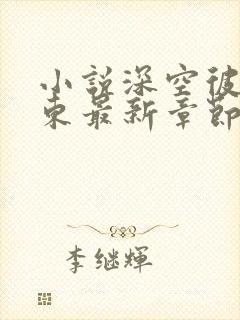 小說深空彼
東最新章節
李继輝